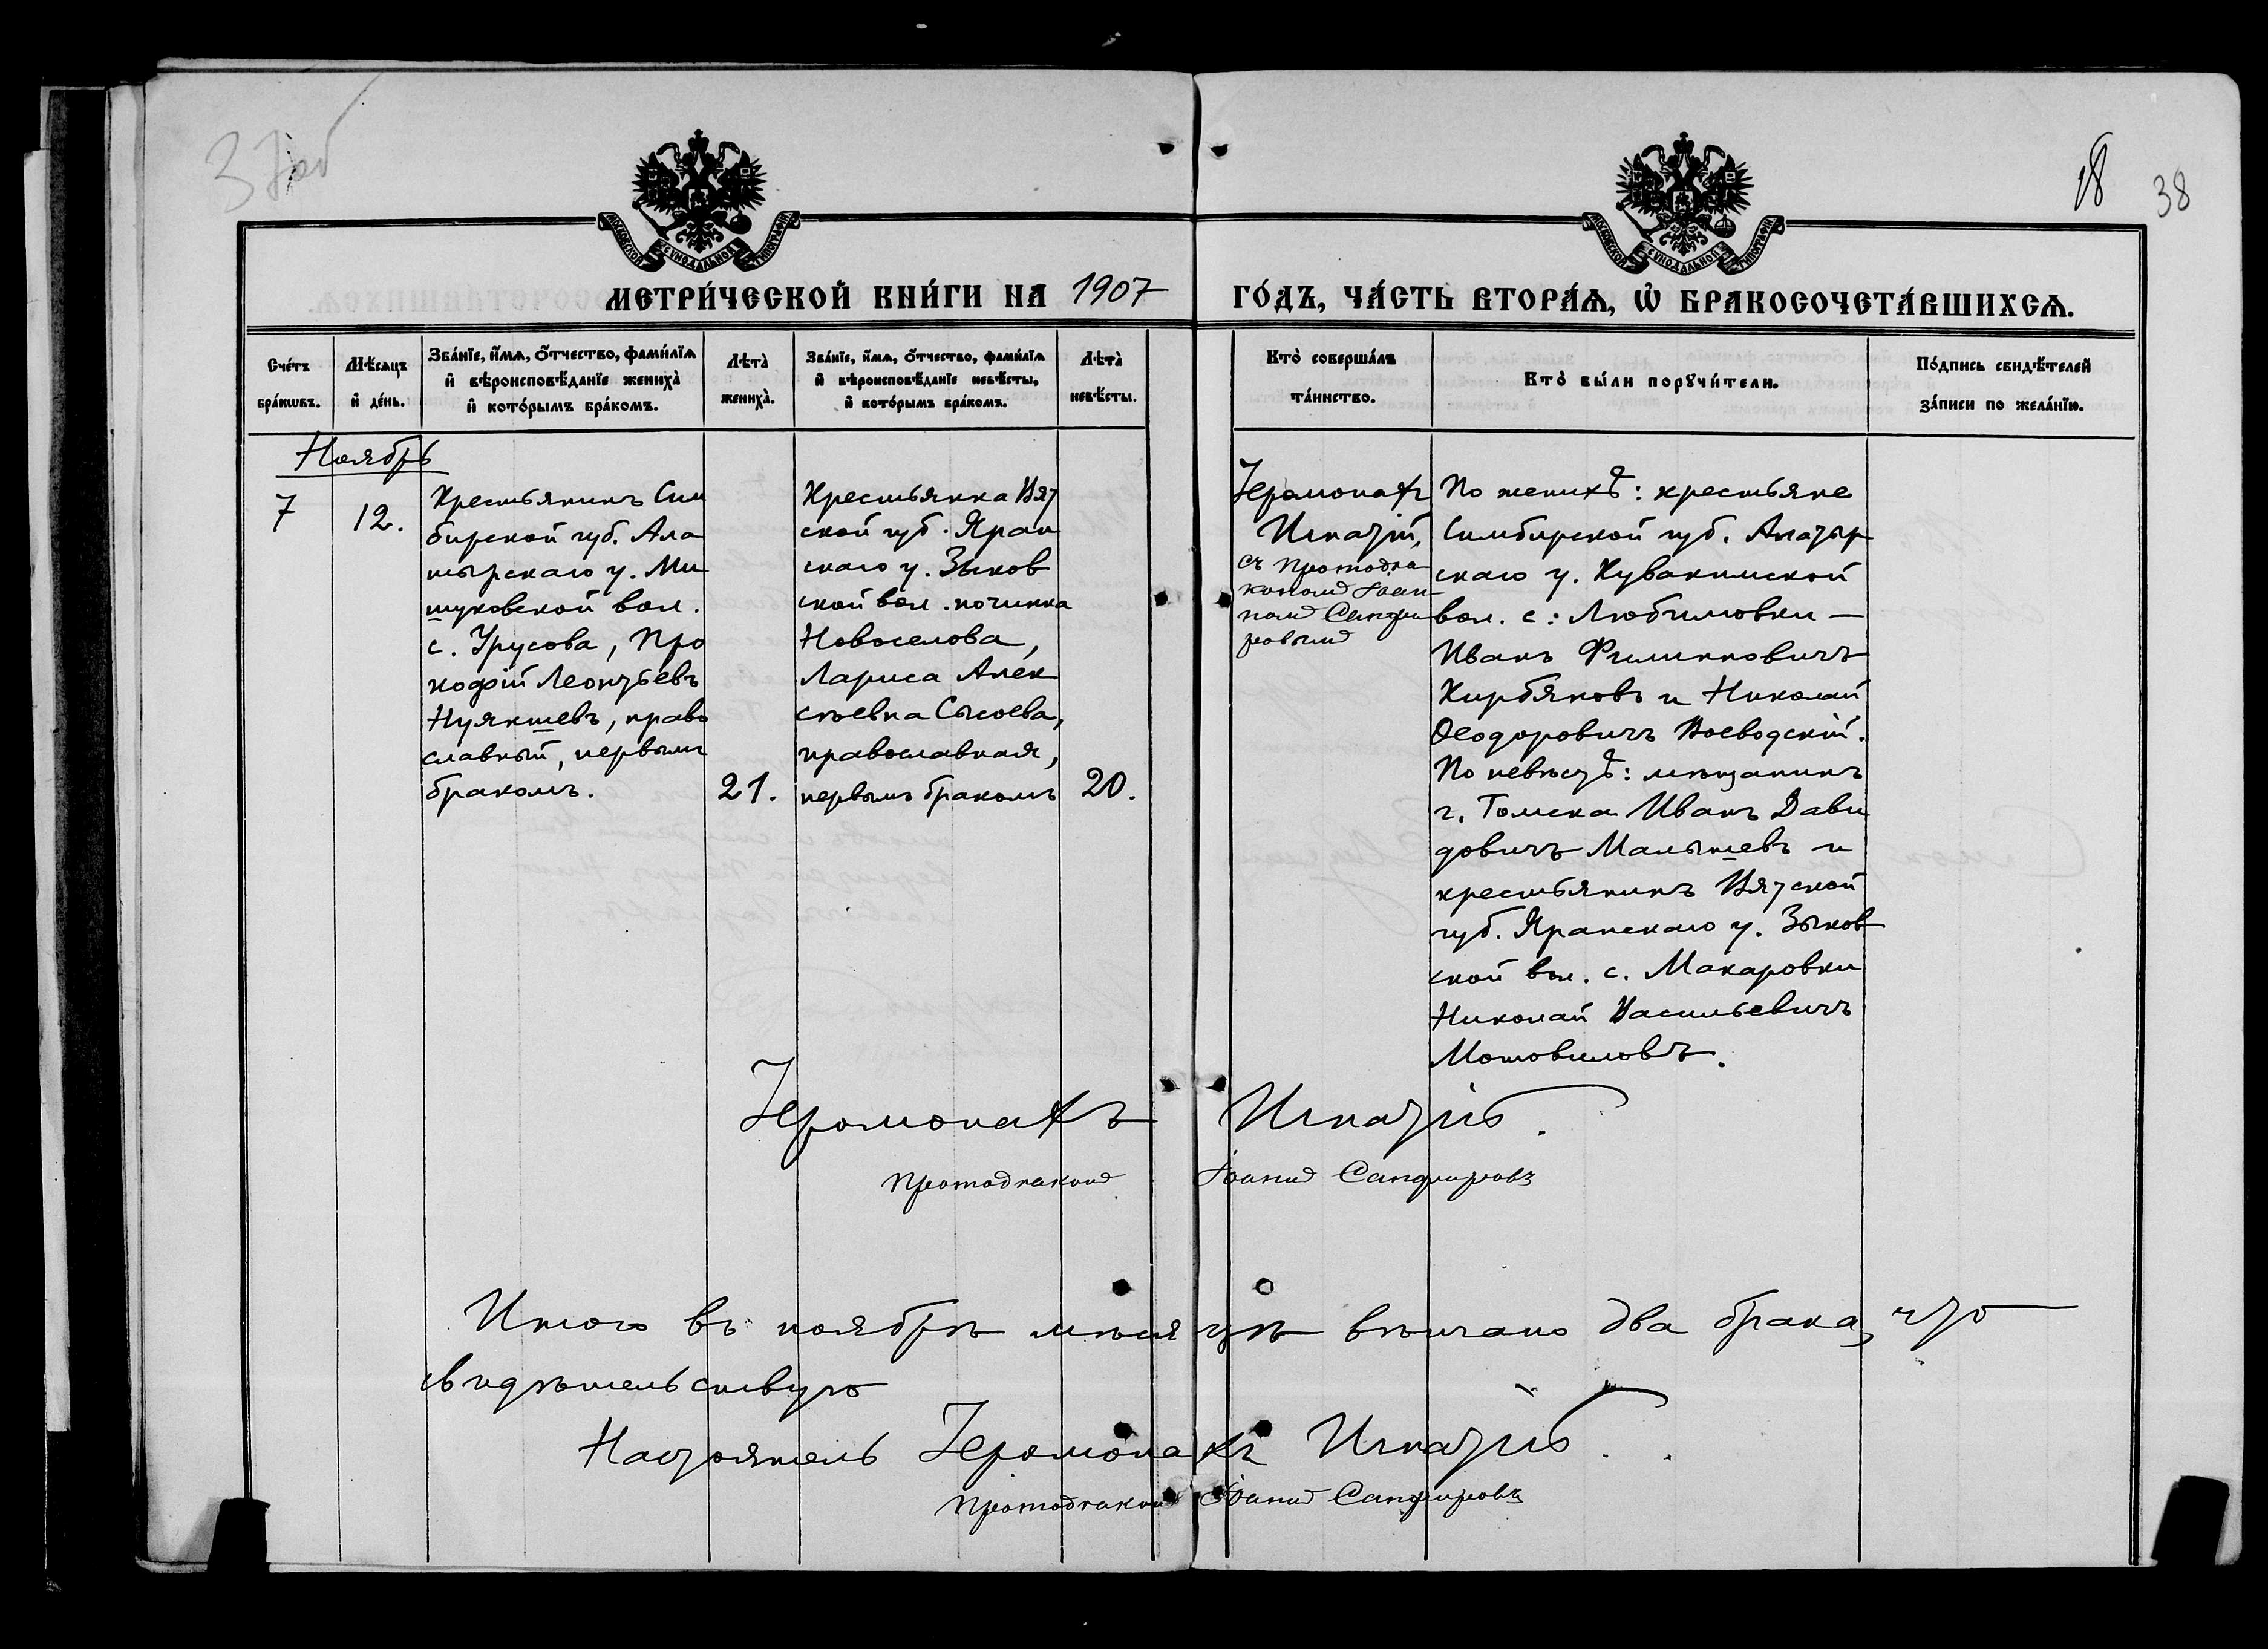 37об
18 38
МОСКОВСКОЙ СѴНОДАЛЬНОЙ ТИПОГРАФІИ.
МОСКОВСКОЙ СѴНОДАЛЬНОЙ ТИПОГРАФІИ.
МЕТРИ́ЧЕСКОЙ КНИ́ГИ НА 1907 ГО́ДЪ, ЧА́СТЬ ВТОРА́Я, Ѡ БРАКОСОЧЕТА́ВШИХСЯ.
Сче́тъ
бра́кѡвъ.
Мѣ́сяцъ
и де́нь.
Зва́нїе, и́мя, о́тчество, фами́лїя
и вѣроисповѣ́данїе жениха̀
и кото́рымъ бра́комъ.
Лѣта̀
жениха̀.
Зва́нїе, и́мя, о́тчество, фами́лїя
и вѣроисповѣ́данїе невѣ́сты,
и кото́рымъ бра́комъ.
Лѣта̀
невѣ́сты.
Кто̀ соверша́лъ
та́инство.
Кто̀ бы́ли порꙋчи́тели.
По́дпись свидѣ́телей
за́писи по жела́нїю.
Ноябрь
7
12.
Крестьянинъ Сим
бирской губ. Ала
тырскаго у. Ми
шуковской вол.
с. Урусова, Про
кофій Леонтьевъ
Нуякшевъ, право
славный, первымъ
бракомъ.
21.
Крестьянка Вят
ской губ. Яран
скаго у. Зыков
ской вол. починка
Новоселова,
Лариса Алек
сѣевна Сысоева,
православная,
первымъ бракомъ
20.
Іеромонахъ
Игнатій,
съ Протодіа
кономъ Іоан
номъ Сапфи
ровымъ
По женихѣ: крестьяне
Симбирской губ. Алатыр
скаго у. Кувакинской
вол. с: Любимовки —
Иванъ Филипповичъ
Кирбяковъ и Николай
Ѳеодоровичъ Воеводскій.
По невѣстѣ: мѣщанинъ
г. Томска Иванъ Дави
довичъ Малышевъ и
крестьянинъ Вятской
губ. Яранскаго у. Зыков
ской вол. с. Макаровки
Николай Васильевичъ
Мотовиловъ.
Іеромонахъ Игнатій.
Протодіаконъ Іоаннъ Сапфировъ
Итого въ ноябрѣ мѣсяцѣ вѣнчано два брака, что
свидѣтельствую
Настоятель Іеромонахъ Игнатій.
Протодіаконъ Іоаннъ Сапфировъ